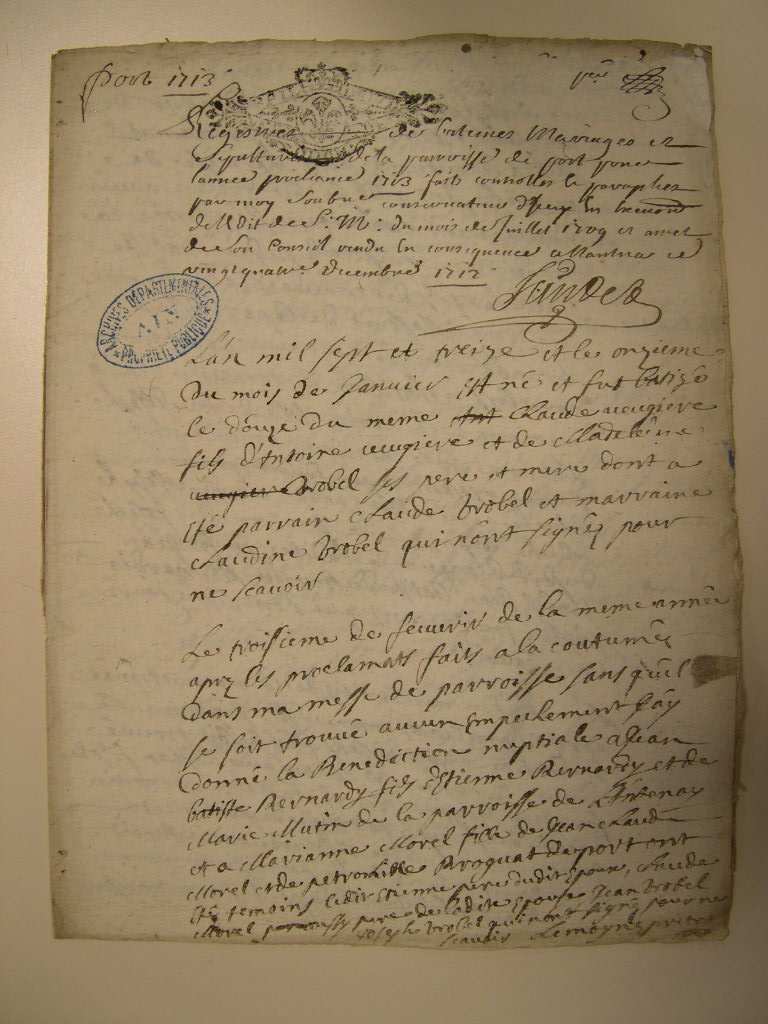 Port 1713
Registres de batemes Mariages et
Sepultures de la parroisse de port pour
lannee prochaine 1713 faits controlles & paraphes
par moy conservateur
de l'Edit de S. M. du mois de Juillet 1709 et arrest
de son Conseil rendu En consequence a Nantua ce
vingt quatre decembre 1712
ARCHIVES DEPARTEMENTALES
AIN
PROPRIETE PUBLIQUE
L'an mil sept et treize et le onzieme
du mois de Janvier Est né et fut batizé
le douze du meme Claude veugiere
fils d'Antoine veugiere et de Madeleine
veugiere Brobel ses pere et mere dont a
été parrain Claude Brobel et marraine
Claudine Brobel qui n'ont signéz pour
ne scavoir
Le troissieme de fevurir de la meme année
aprz les proclamats faits a la coutumée
dans ma messe de parroisse sans qu'il
se soit trouvé aucun empechement j'ay
donné la Benediction nuptiale a Jean
batiste Bernardy fils d'Estienne Bernardy et de
Marie Mutin de la parroisse de
et a Marianne Morel fille de Jean Claude
Morel et de petronille Broquat de port ont
été temoins ledit Estienne pere dudit Epoux, Claude
Morel pere de ladite Epouse Jean Brobel
Joseph Brobel qui n'ont signé pour ne
scavoir Lemoyne pretre